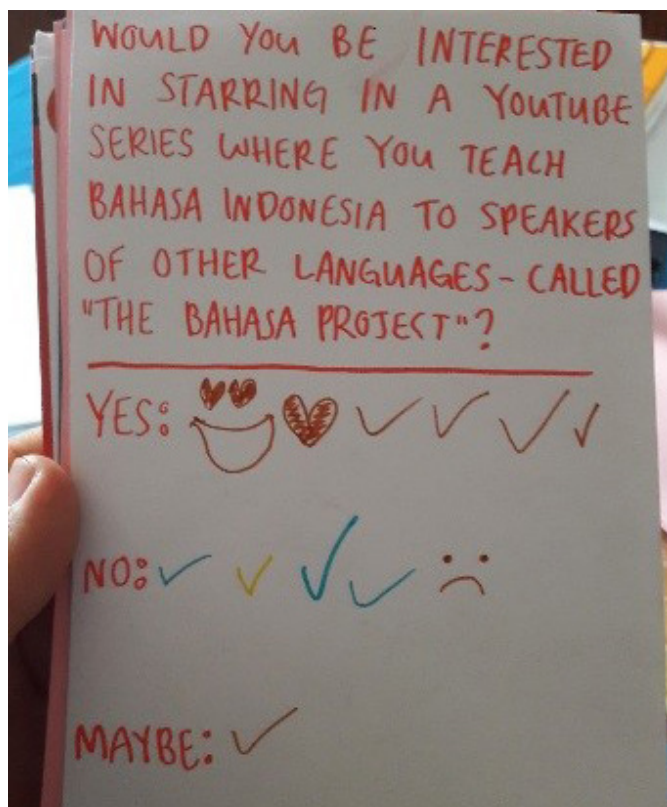 WOULD YOU BE INTERESTED
IN STARRING IN A YOUTUBE
SERIES WHERE YOU TEACH
BAHASA INDONESIA TO SPEAKERS
OF OTHER LANGUAGES - CALLED
"THE BAHASA PROJECT"?
YES:
NO:
MAYBE: